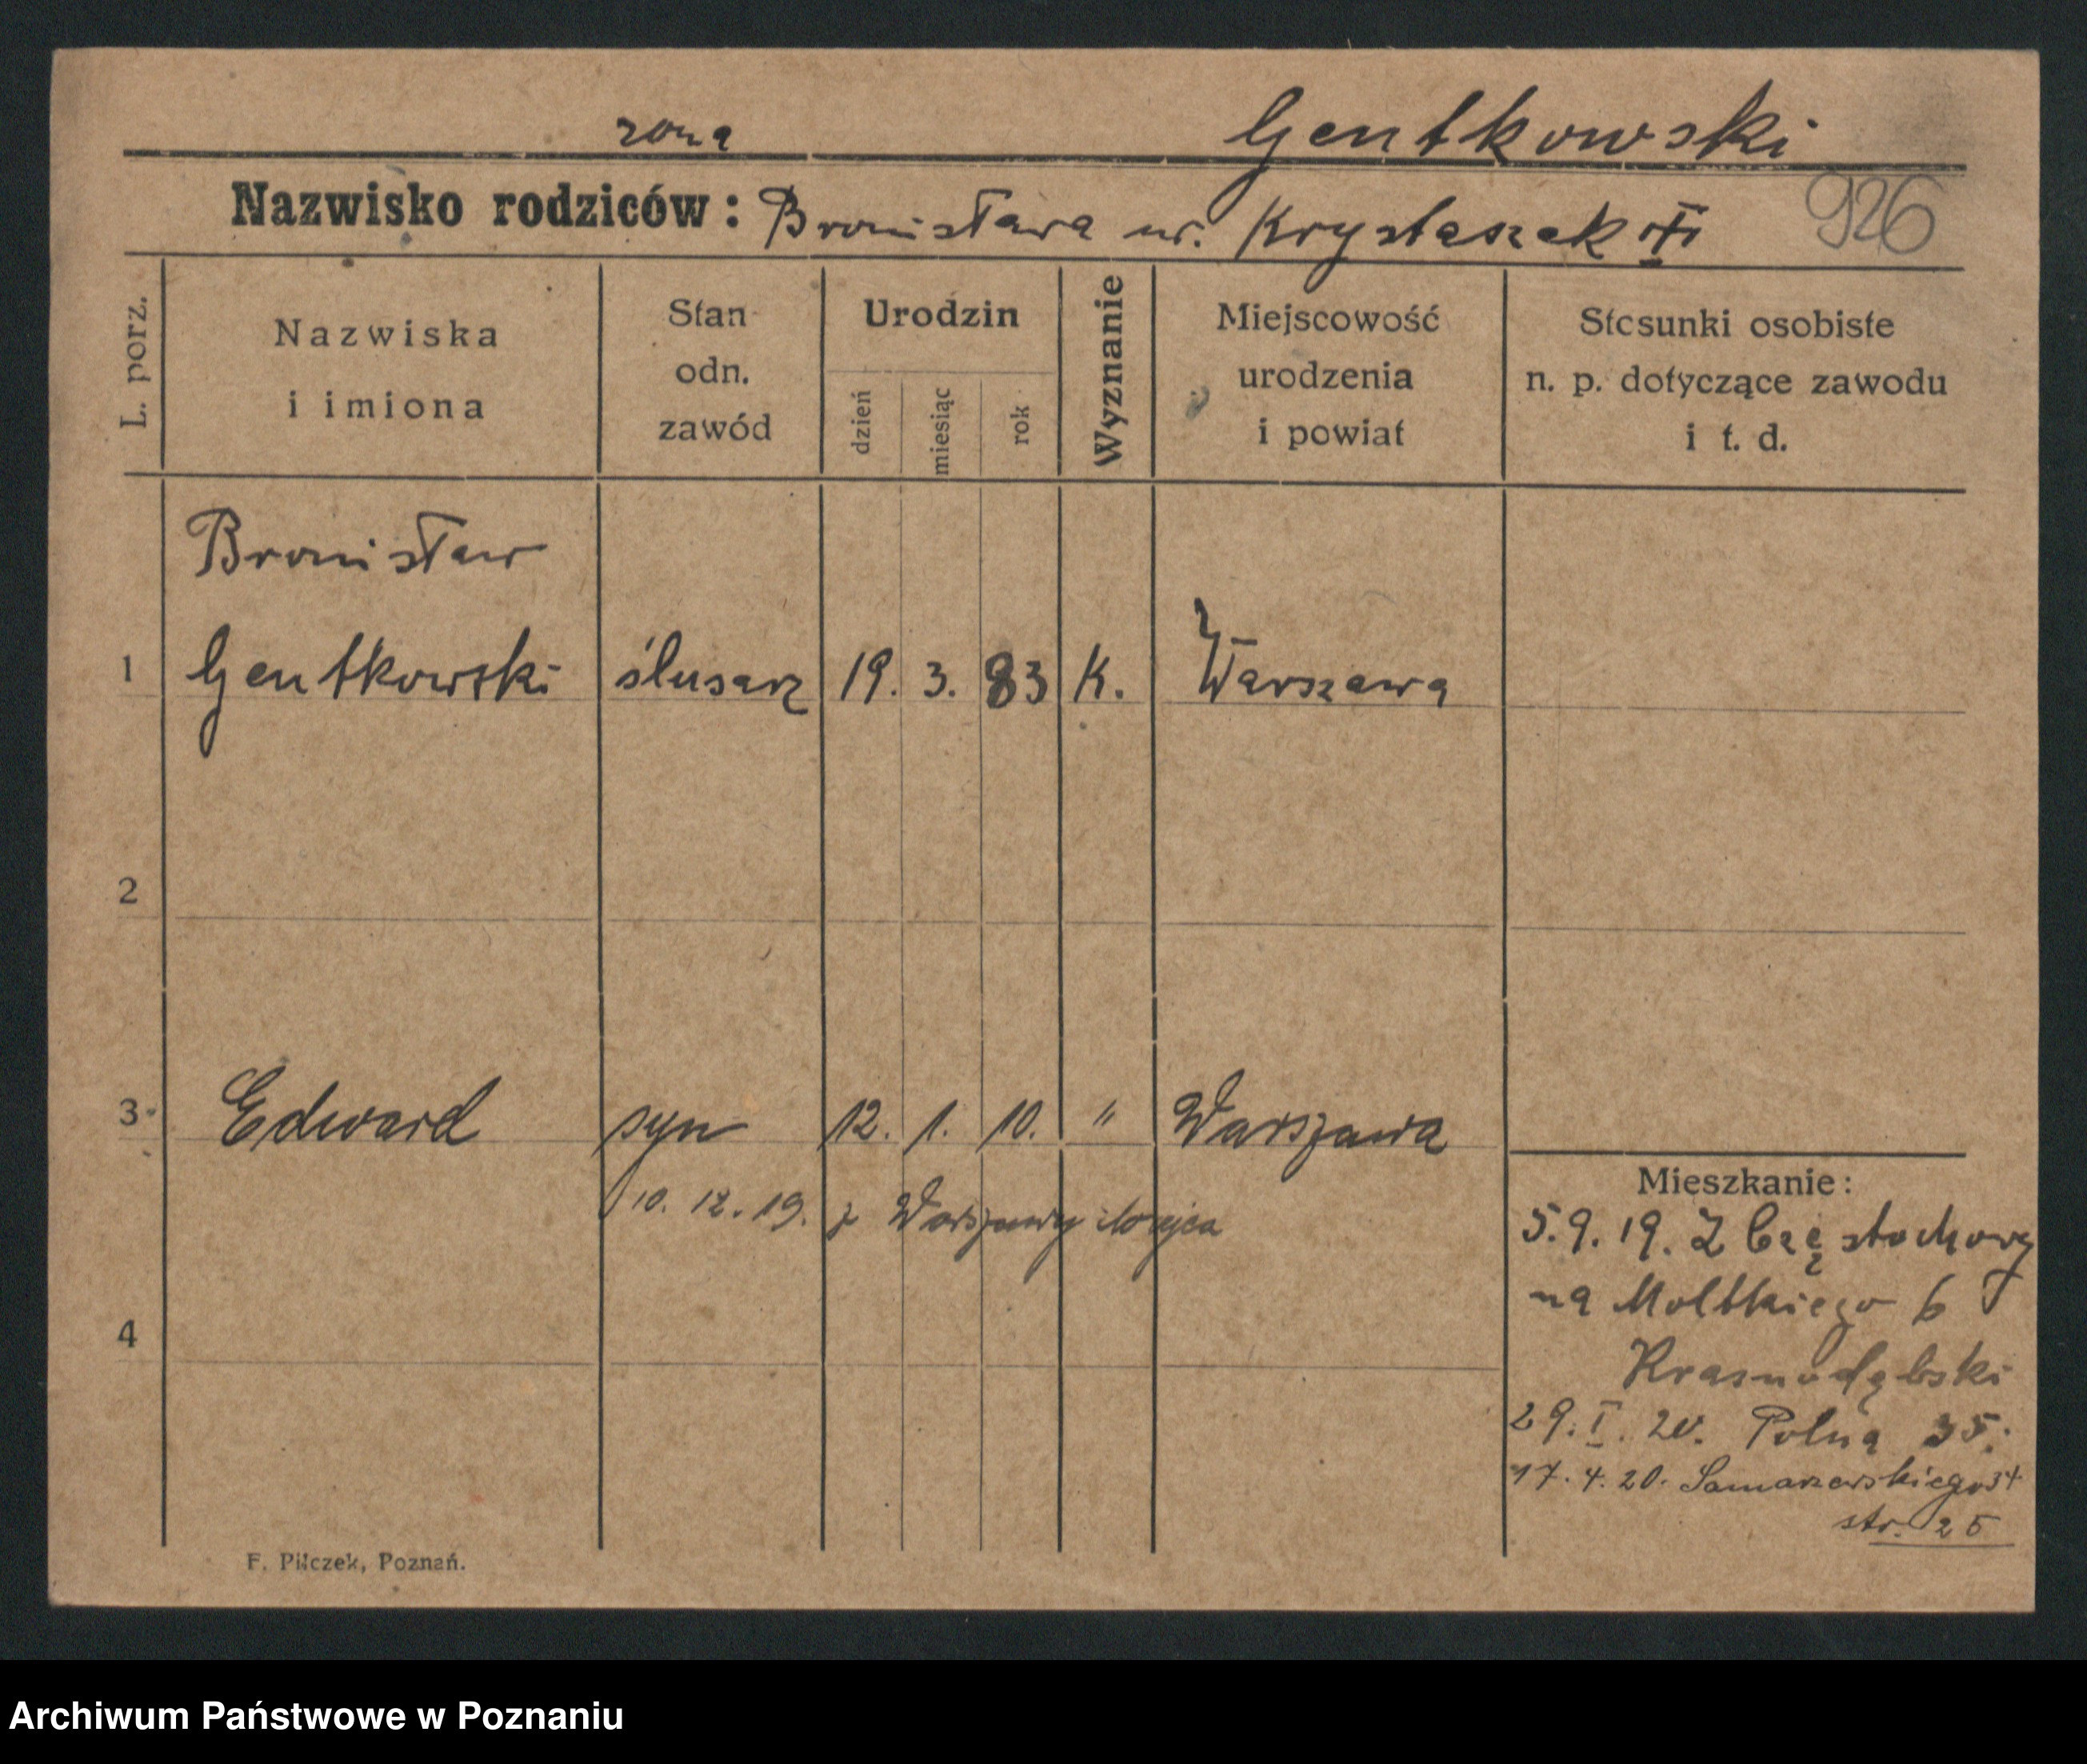 żona Gentkowski
Nazwisko rodziców: Bronisława ur. Krystaszek 926
L. porz.
Nazwiska
i imiona
Stan
odn.
zawód
Urodzin
dzień
miesiąc
rok
Wyznanie
Miejscowość
urodzenia
i powiat
Stosunki osobiste
n. p. dotyczące zawodu
i t. d.
Bronisław
1 Gentkowski ślusarz 19. 3. 83 K. Warszawa
2
3 Edward syn 12. 1. 10. " Warszawa
10. 12. 19. z Warszawy do ojca
4
Mieszkanie:
5.9.19. Z Częstochowy
na Moltkiego 6
Krasnodębski
29. I. 20. Polna 35.
17. 4. 20. Samarzewskiego 34
str. 25
F. Pilczek, Poznań.
Archiwum Państwowe w Poznaniu